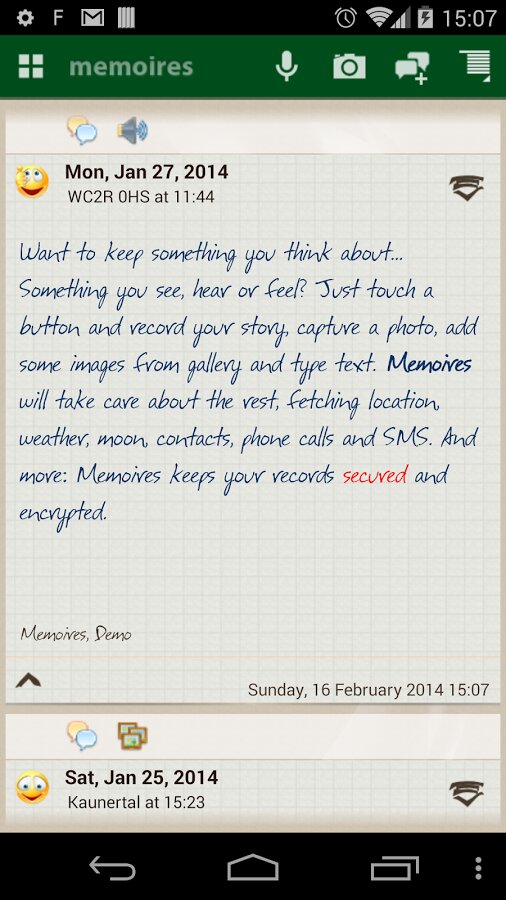 F
15:07
memoires
Mon, Jan 27, 2014
WC2R 0HS at 11:44
Want to keep something you think about...
Something you see, hear or feel? Just touch a
button and record your story, capture a photo, add
some images from gallery and type text. Memoires
will take care about the rest, fetching location,
weather, moon, contacts, phone calls and SMS. And
more: Memoires keeps your records secured and
encrypted.
Memoires, Demo
Sunday, 16 February 2014 15:07
Sat, Jan 25, 2014
Kaunertal at 15:23